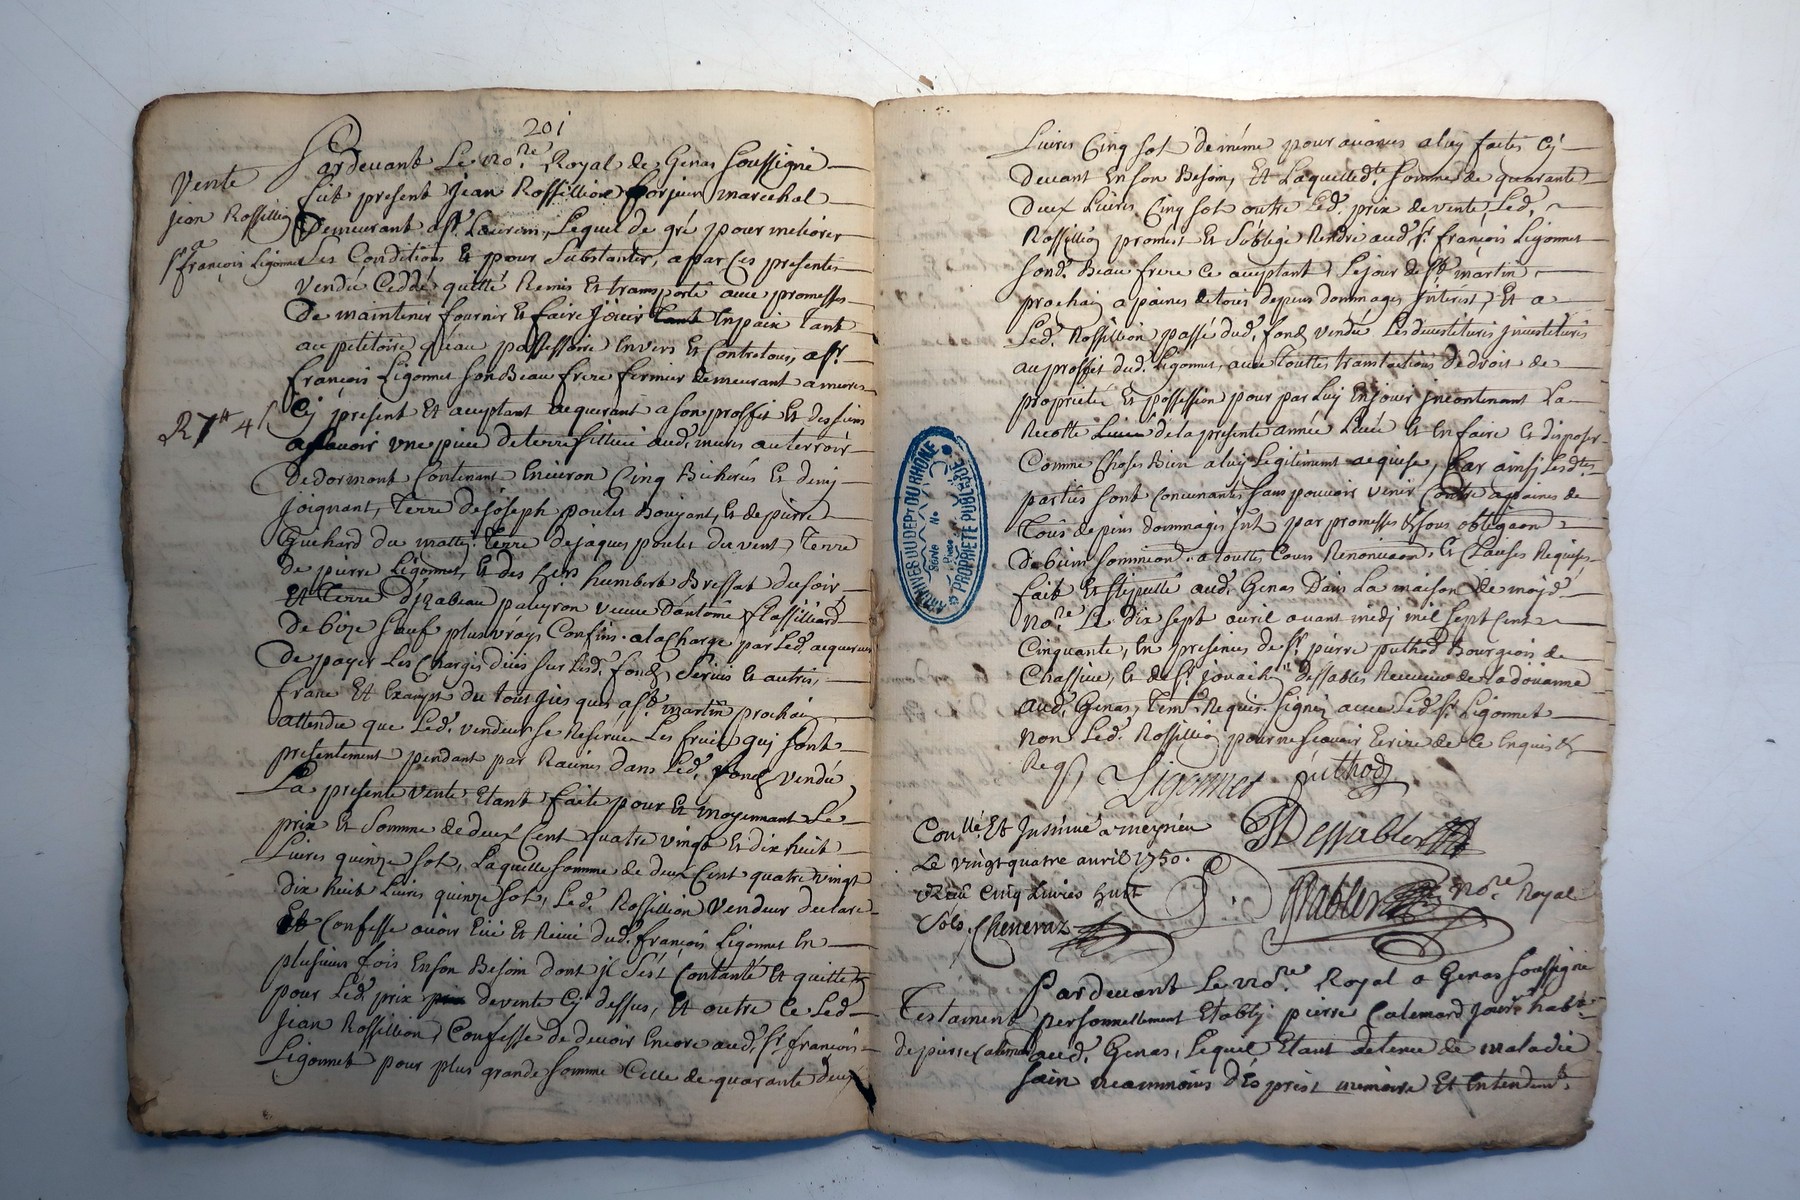 201
Vente
jean Rossillion
a
sr françois Ligonnet
R 7# 4 s
Pardevant Le no.re Royal de Genas soussigné
fut present jean Rossillion forjeur marechal
Demeurant a st. Laurens, Lequel de gré pour meliorer
Les Conditions Et pour substanter, a par Ces presentes
vendu Ceddé quitté Remis Et transporté avec promesses
De maintenir fournir Et faire joüir tant Enpaix tant
au petitoire qu'au possessoire Envers Et Contre tous, a sr.
françois Ligonnet son Beau frere fermier demeurant a mures
Cy present Et aceptant aquerant a son proffit Et des siens
asavoir vne piece de terre sittuée aud. mures au terroir
De dormont Contenant Environ Cinq Bicherées Et demy
joignant, terre de joseph poulet Boujant, Et de pierre
Guichard du matin, terre de jaques poulet du vent, terre
de pierre Ligonnet, Et des hers humbert Bressat du soir
Et terre d'jzabeau pateyron veuve d'antoine flassilliard
De bize sauf plus vrays Confins. a la Charge par Led. aquereur
De payer Les Charges dües sur Led. fondz Servis Et autres,
franc Et Exampt du tout jusques a st. martin prochain
attendu que Led. vendeur se Reserve Les fruits quj sont
presentement pendant par Racines dans Led. fondz vendu,
La presente vente Etant faite pour Et moyennant Le
prix Et Somme de deux Cent quatre vingt Et dix huit
Livres quinze sot, Laquelle somme de deux Cent quatre vingt
dix huit Livres quinze sot, Led. Rossillion vendeur declare
Et Confesse avoir Eüe Et Reçue dud. françois Ligonnet En
plusieurs fois En son Besoin dont jl s'est Contanté Et quitte
pour Led. prix de vente Cy dessus, Et outre Ce Led
jean Rossillion, Confesse de devoir Encore aud. sr. françois
Ligonnet pour plus grande somme Celle de quarante deux
Livres Cinq sot de méme pour avances a luy faites Cy
Devant En son Besoin, Et Laquelle d.te Somme de quarante
Deux Livres Cinq sot outre Led. prix de vente, Led.
Rossillion promest Et s'oblige Rendre aud. sr. françois Ligonnet
sond. Beau frere Ce aceptant, Le jour de st. martin
prochain a paines de tous depens dommages jnterest, Et a
Led. Rossillion passé dud. fondz vendu Les devestitures jnvestitures
au proffit dud. Ligonnet, avec touttes translactions De droit de
proprieté Et possession pour par Luy En joüir jncontinant La
Recolte de la presente année Levée Et En faire Et disposer
Comme Choses Bien a luy Legitiment aquise, Car ainsy Lesd.tes
parties sont Convenantes sans pouvoir venir Contre a paines de
Tous depens dommages jnt par promesses Et sous obligaon
De biens sommions a touttes Cours Renonciaon, Et Clauses Requises
fait Et stipullé aud. Genas Dans La maison De moy d.
no.re Le dix sept avril avant midj mil sept Cens
Cinquante, En presences de sr. pierre puthod Bourgeois de
Chassieu, Et de sr. jouachin dessables Receveur de La doüanne
aud. Genas, Tems. Requis signés avec Led. sr. Ligonnet
non Led. Rossillion pour ne sçavoir Ecrire de Ce Enquis Et
Reqs
Ligonnet puthod
Con.llé. Et Jnsinué a meyzieu
Le vingt quatre avril 1750.
Reçu Cinq Livres huit
sols. Cheneraz
JDessables
Dessables no.re Royal
ARCHIVES DU DEPT DU RHONE
PROPRIÉTÉ PUBLIQUE
Testament
de pierre Calemard
Pardevant Le no.re Royal a Genas soussigné
personnellement Etably pierre Calemard jour.r hab.t
aud. Genas, Lequel Etant detenu de maladie
sain neanmoins d'Esprist memoire Et Entendem.t